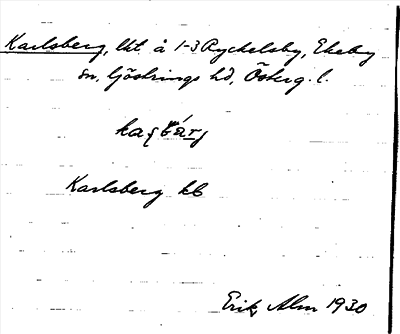 Karlsberg, lht. å 1-3 Ryckelsby, Ekeby
sn, Göstrings hd, Österg. l.
Karlsberg kb
Erik Alm 1930